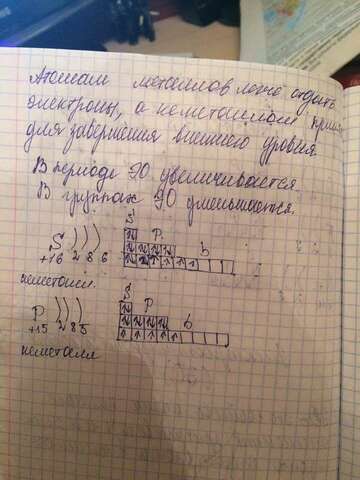 Атомам металлов легче отдать
электроны, а неметаллам прин
для завершения внешнего уровня
В периоде ЭО увеличивается
В группах ЭО уменьшается.
S
P
S
+16 2 8 6
d
неметалл.
S
P
P
+15 2 8 5
d
неметалл